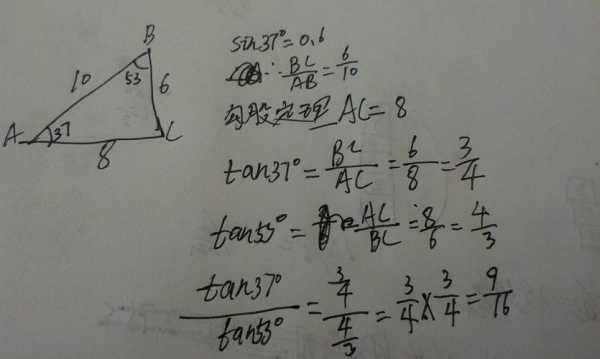 B
10
53
6
A
37
C
8
sin37°=0.6
∴ BC/AB = 6/10
勾股定理 AC=8
tan37° = BC/AC = 6/8 = 3/4
tan53° = AC/BC = 8/6 = 4/3
tan37°/tan53° = 3/4 / 4/3 = 3/4 × 3/4 = 9/16